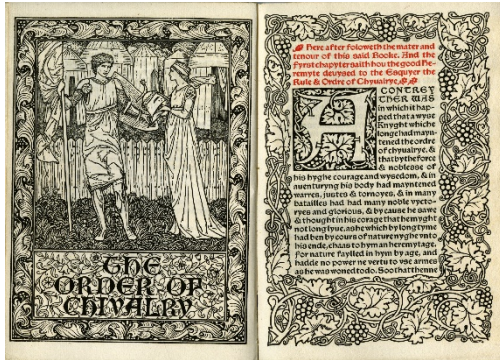 THE
ORDER OF
CHIVALRY
Here after foloweth the mater and
tenour of this said Booke. And the
fyrst chapyter saith hou the good He-
remyte devysed to the Esquyer the
Rule & Ordre of Chyualrye.
A CONTREY
THER WAS
in which it hap-
ped that a wyse
knyght whiche
longe had mayn-
tened the ordre
of chyualrye, &
that by the force
& noblesse of
his hyghe courage and wysedom, & in
auenturyng his body had mayntened
warres, justes & tornoyes, & in many
batailles had had many noble vycto-
ryes and glorious, & by cause he sawe
& thought in his corage that he myght
not longlyue, as he which by long tyme
had ben by cours of nature nyghe vnto
his ende, chaas to hym an heremytage.
For nature faylled in hym by age, and
hadde no power ne vertu to vse armes
as he was woned to do. Soo that thenne